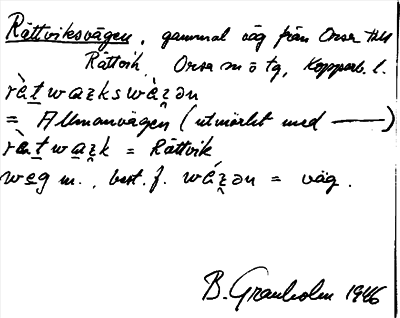 Rättviksvägen, gammal väg från Orsa till
Rättvik, Orsa m o tg, Kopparb. l.
rὰt̲wazkswὰʒən
= Allmanvägen (utmärkt med ——)
rὰt̲wa̲ʒk = Rättvik
we̲g m., best. f. wáʒən = väg.
B. Granholm 1946